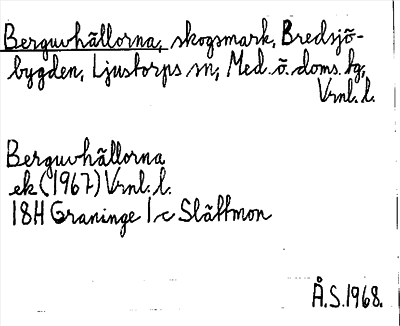 Berguvhällorna, skogsmark, Bredsjö-
bygden, Ljustorps sn, Med. ö. doms. tg,
Vrnl. l.
Berguvhällorna
ek (1967) Vrnl. l.
18H Graninge 1 c Slättmon
Å.S. 1968.